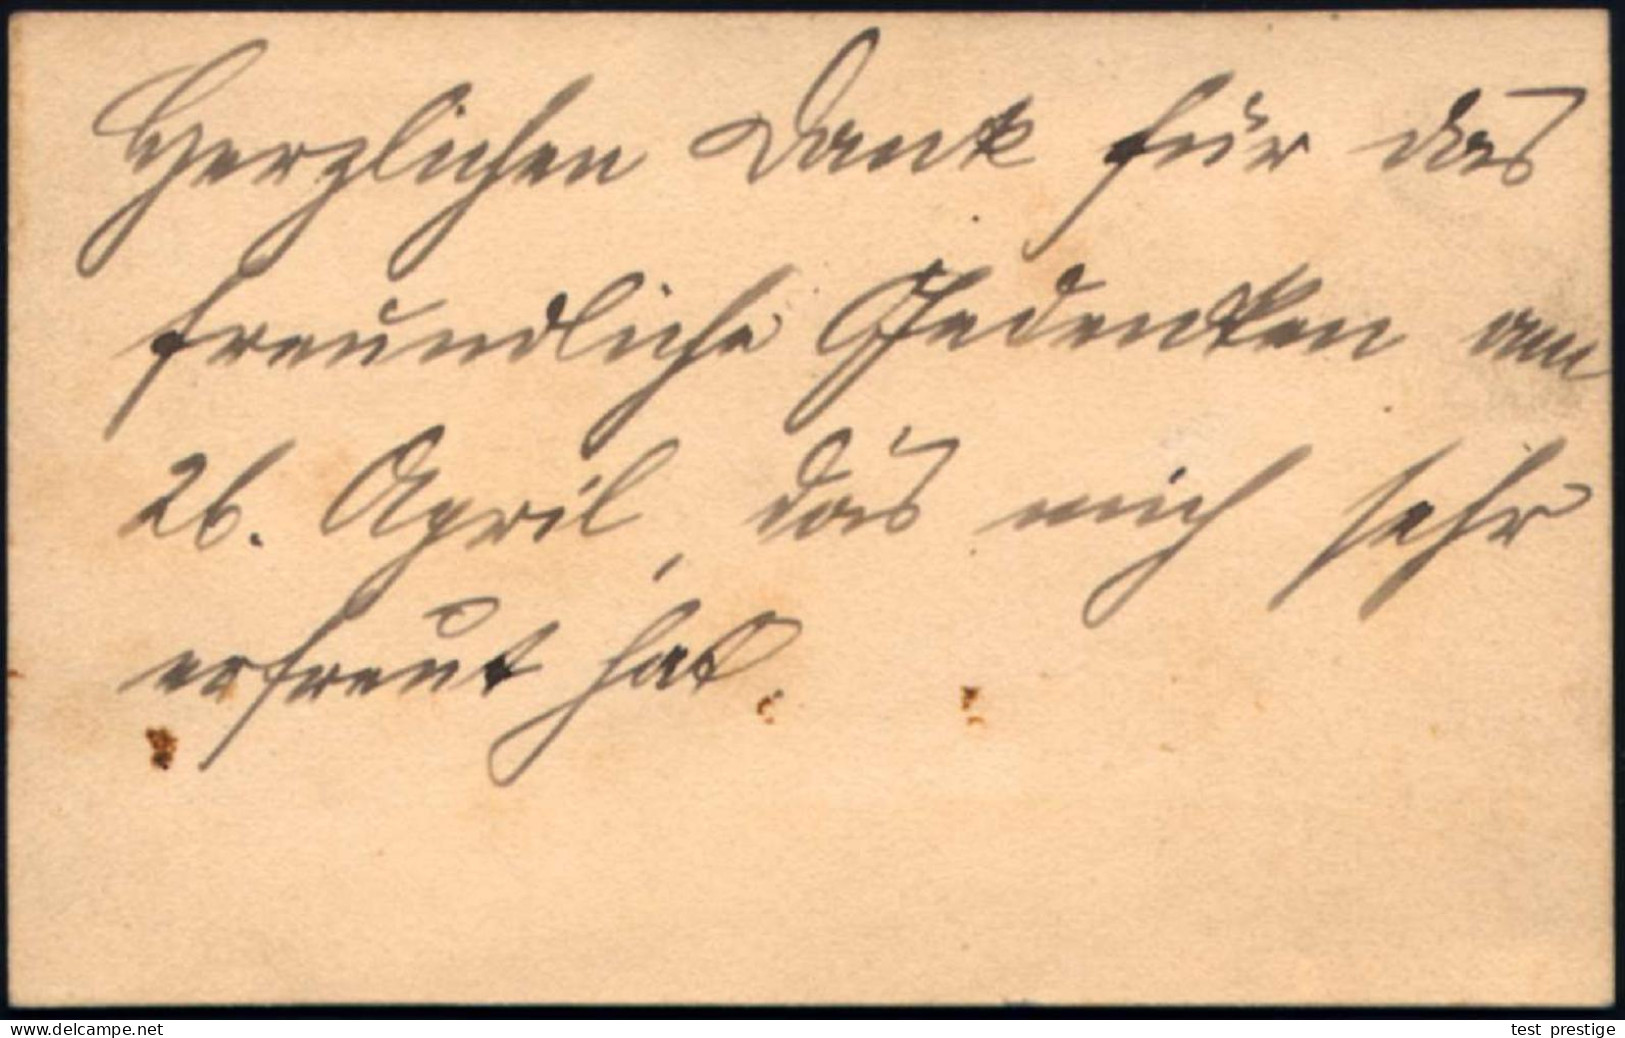 Herzlichen Dank für das
freundliche Gedenken am
26. April, das mich sehr
erfreut hat.
www.delcampe.net
test_prestige